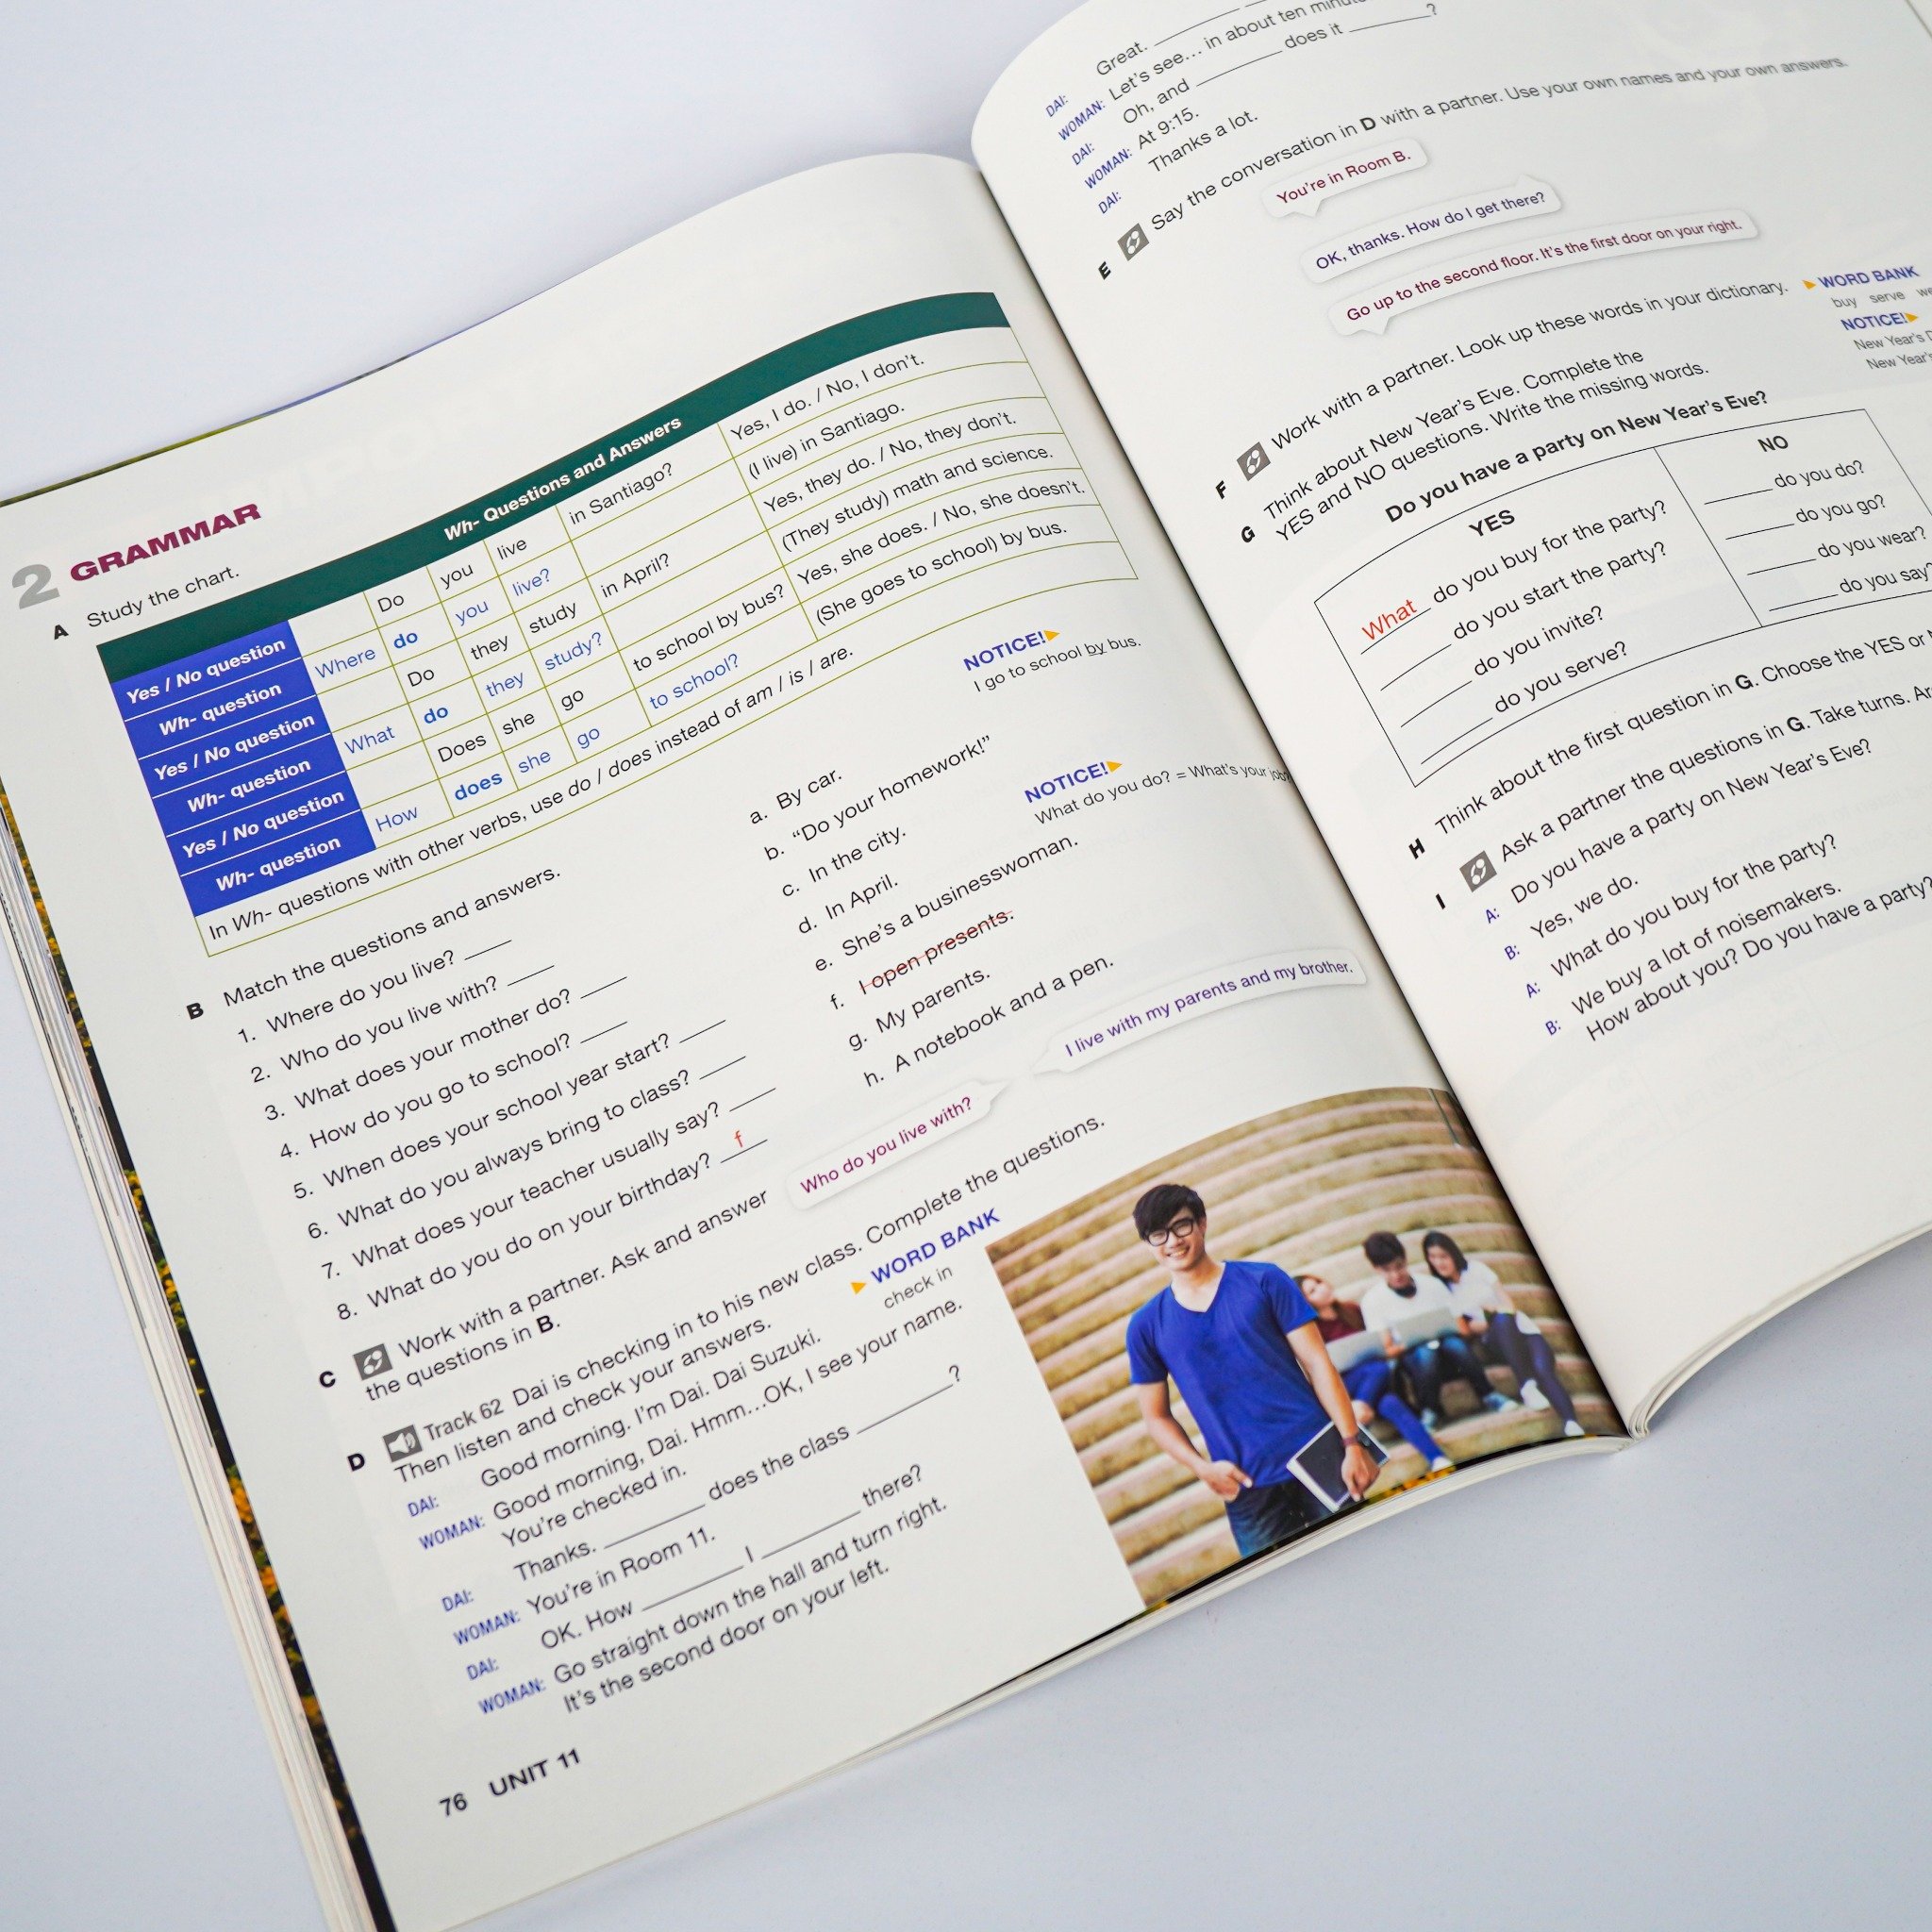 2 GRAMMAR
A Study the chart.
Wh- Questions and Answers
Yes / No question Do you live in Santiago? Yes, I do. / No, I don't.
Wh- question Where do you live? (I live) in Santiago.
Yes / No question Do they study in April? Yes, they do. / No, they don't.
Wh- question What do they study? (They study) math and science.
Yes / No question Does she go to school by bus? Yes, she does. / No, she doesn't.
Wh- question How does she go to school? (She goes to school) by bus.
In Wh- questions with other verbs, use do / does instead of am / is / are.
NOTICE!
I go to school by bus.
B Match the questions and answers.
1. Where do you live? ____
2. Who do you live with? ____
3. What does your mother do? ____
4. How do you go to school? ____
5. When does your school year start? ____
6. What do you always bring to class? ____
7. What does your teacher usually say? ____
8. What do you do on your birthday? f
a. By car.
b. "Do your homework!"
c. In the city.
d. In April.
e. She's a businesswoman.
f. I open presents.
g. My parents.
h. A notebook and a pen.
NOTICE!
What do you do? = What's your job
C Work with a partner. Ask and answer
the questions in B.
Who do you live with?
I live with my parents and my brother.
D Track 62 Dai is checking in to his new class. Complete the questions.
Then listen and check your answers.
WORD BANK
check in
DAI: Good morning. I'm Dai. Dai Suzuki.
WOMAN: Good morning, Dai. Hmm...OK, I see your name.
You're checked in.
DAI: Thanks. ________ does the class ________?
WOMAN: You're in Room 11.
DAI: OK. How ________ I ________ there?
WOMAN: Go straight down the hall and turn right.
It's the second door on your left.
76 UNIT 11
DAI: Great. ________
WOMAN: Let's see... in about ten
DAI: Oh, and ________ does it ________?
WOMAN: At 9:15.
DAI: Thanks a lot.
E Say the conversation in D with a partner. Use your own names and your own answers.
You're in Room B.
OK, thanks. How do I get there?
Go up to the second floor. It's the first door on your right.
F Work with a partner. Look up these words in your dictionary.
WORD BANK
buy serve
NOTICE!
New Year's
New Year's
G Think about New Year's Eve. Complete the
YES and NO questions. Write the missing words.
Do you have a party on New Year's Eve?
YES
What do you buy for the party?
____ do you start the party?
____ do you invite?
____ do you serve?
NO
____ do you do?
____ do you go?
____ do you wear?
____ do you say?
H Think about the first question in G. Choose the YES or
I Ask a partner the questions in G. Take turns.
A: Do you have a party on New Year's Eve?
B: Yes, we do.
A: What do you buy for the party?
B: We buy a lot of noisemakers.
How about you? Do you have a party?